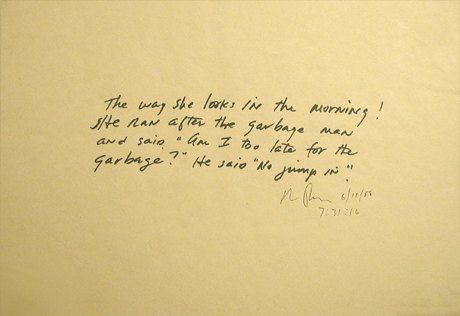 The way she looks in the morning!
She ran after the garbage man
and said. "Am I too late for the
garbage?" He said "No jump in".